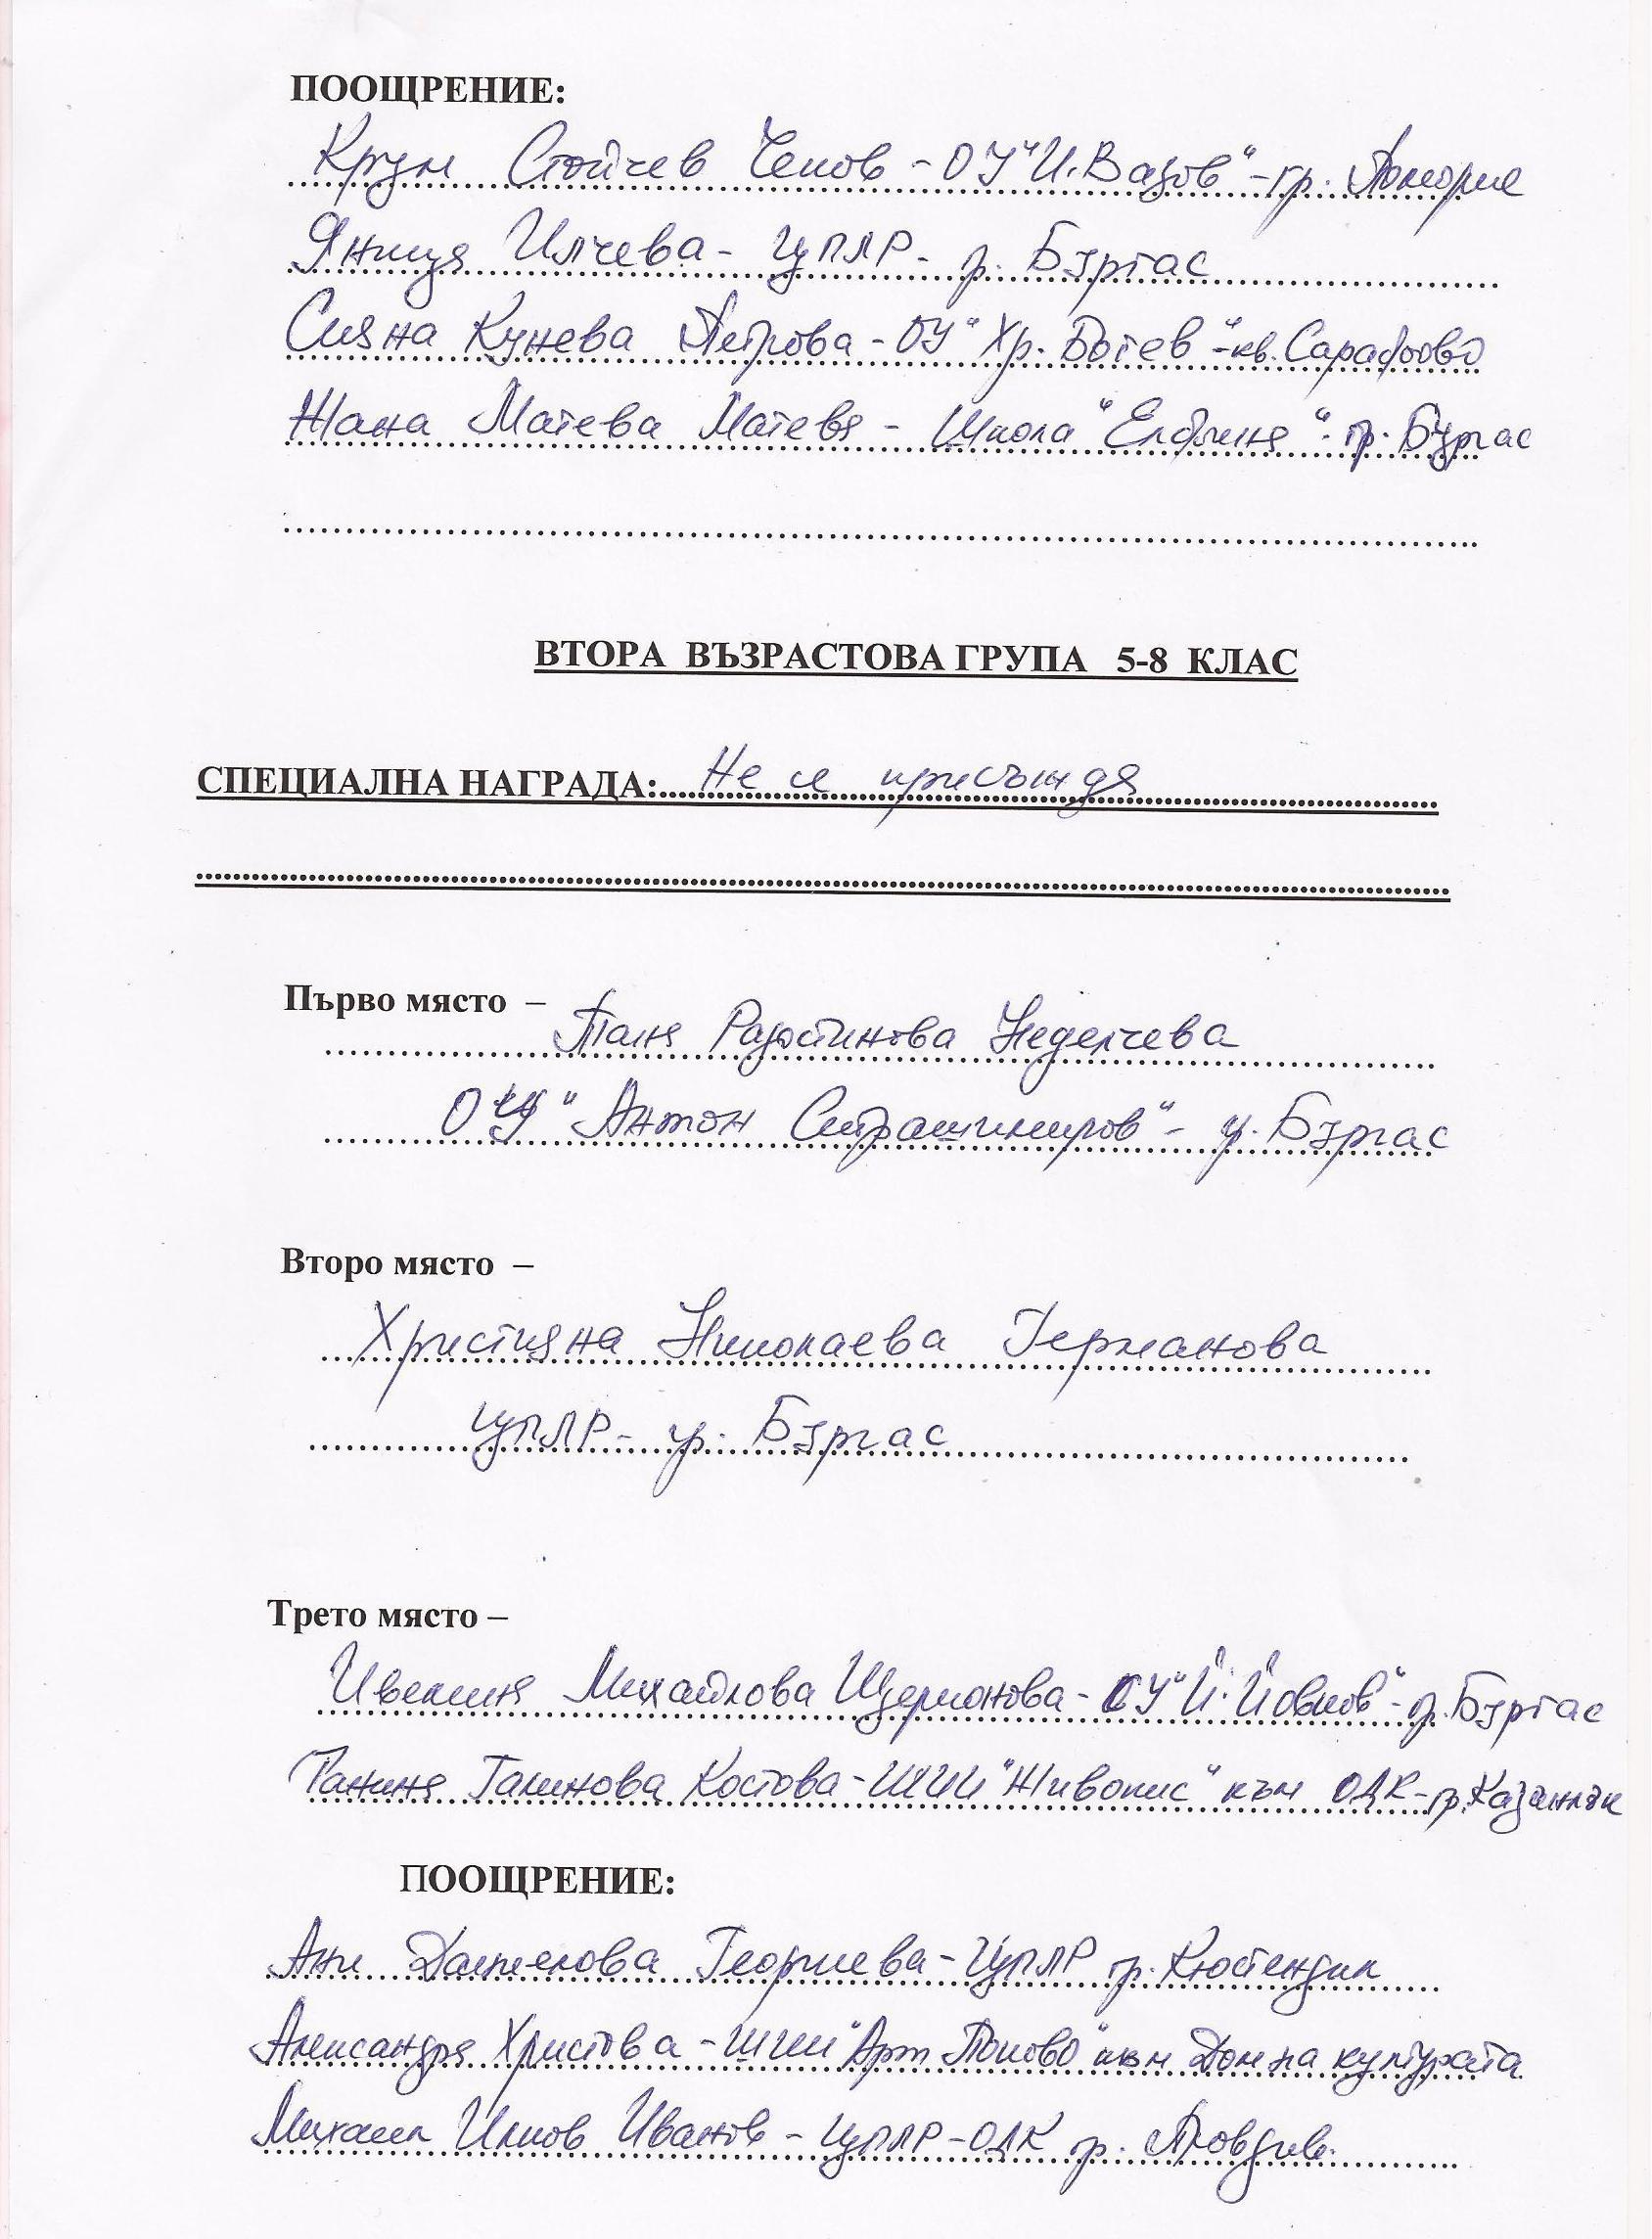 ПООЩРЕНИЕ:
Крум Стойчев Ченов - ОУ "И. Вазов" - гр. Поморие
Яница Илчева - ЦПЛР - гр. Бургас
Сияна Кунева Петрова - ОУ "Хр. Ботев" - кв. Сарафово
Жана Матева Матева - Школа "Елбминя" - гр. Бургас
ВТОРА ВЪЗРАСТОВА ГРУПА 5-8 КЛАС
СПЕЦИАЛНА НАГРАДА: Не се присъжда
Първо място –
Таня Радостинова Неделчева
ОУ "Антон Страшимиров" - гр. Бургас
Второ място –
Християна Николаева Германова
ЦПЛР - гр. Бургас
Трето място –
Ивелина Михайлова Щерионова - СУ "Й. Йовков" - гр. Бургас
Галинова Костова - ШИИ "Живопис" към ОДК - гр. Казанлък
ПООЩРЕНИЕ:
Ани Даниелова Георгиева - ЦПЛР гр. Кюстендил
Александра Христова - ШИИ "Арт Попово" към Дом на културата
Михаил Илков Иванов - ЦПЛР - ОДК гр. Пловдив.